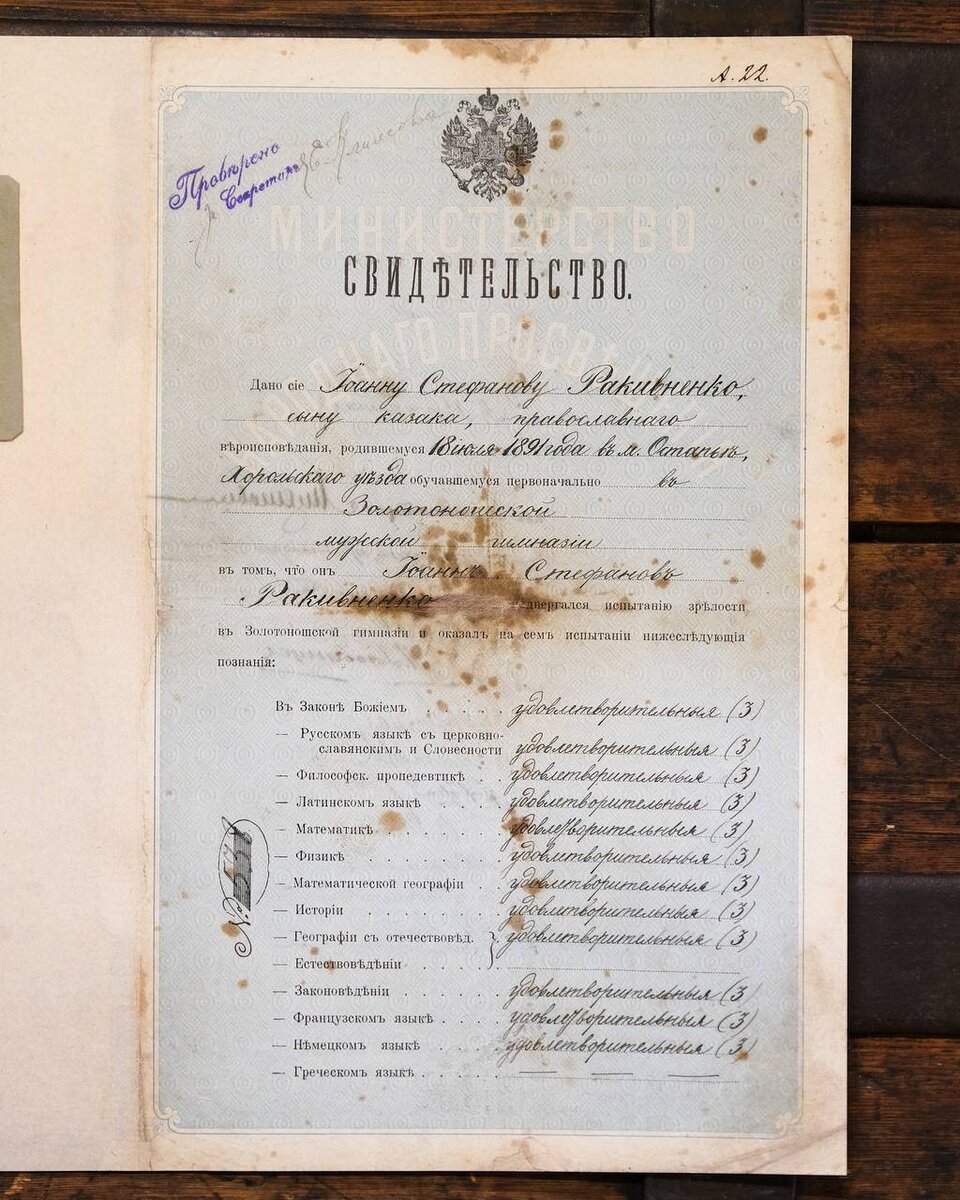 А. 22.
Провѣрено
Секретарь
МИНИСТЕРСТВО
СВИДѢТЕЛЬСТВО.
Дано сіе Іоанну Стефанову Ракивненко,
сыну казака, православнаго
вѣроисповѣданія, родившемуся 18 іюля 1891 года въ м. Остапьѣ,
Хорольскаго уѣзда обучавшемуся первоначально въ
Золотоношской
мужской гимназіи
въ томъ, что онъ Іоаннъ Стефановъ
Ракивненко подвергался испытанію зрѣлости
въ Золотоношской гимназіи и оказалъ на семъ испытаніи нижеслѣдующія
познанія:
Въ Законѣ Божіемъ . . . . . удовлетворительныя (3)
— Русскомъ языкѣ съ церковно-
славянскимъ и Словесности удовлетворительныя (3)
— Философск. пропедевтикѣ . . удовлетворительныя (3)
— Латинскомъ языкѣ . . . . удовлетворительныя (3)
— Математикѣ . . . . . . . удовлетворительныя (3)
— Физикѣ . . . . . . . . удовлетворительныя (3)
— Математической географіи . . удовлетворительныя (3)
— Исторіи . . . . . . . . удовлетворительныя (3)
— Географіи съ отечествовѣд. } удовлетворительныя (3)
— Естествовѣдѣніи . . . . .
— Законовѣдѣніи . . . . . . удовлетворительныя (3)
— Французскомъ языкѣ . . . . удовлетворительныя (3)
— Нѣмецкомъ языкѣ . . . . удовлетворительныя (3)
— Греческомъ языкѣ . . . . . — — —